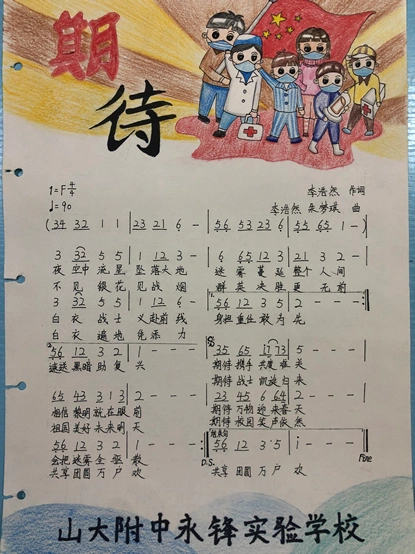 期
待
1=F 4/4
♩=90
李浩然 作词
李浩然 朱梦瑛 曲
(34 32 1 1 | 23 21 6 - | 56 53 23 6 | 55 65 1 - )
3 32 5 5 | 1 12 3 - | 6 65 12 3 | 21 21 2 - |
夜空中 流星 坠落大地 迷雾蔓延 整个人间
不见 银花 见战烟 群英决胜更无前
3 32 5 5 | 1 12 3 - | 56 12 3 5 | 2 - - - :|
白衣 战士 义赴前线 身担重任敢为先
白衣 遍地 凭添力
56 12 3 2 | 1 - - - | 35 65 17 73 | 5 - - - |
速送黑暗助复兴 期待携手共度难关
期待战士凯旋归来
65 43 3 1 3 | 2 - - - | 23 45 6 64 | 2 - - - |
相信黎明就在眼前 期待万物迎来春天
祖国美好未来明天 期待校园笑声依然
结束句
56 12 3 2 | 1 - - - :| 56 12 3·5 | 1 - - - ‖
D.S. Fine
会把迷雾全驱散 共享团圆万户欢
共享团圆万户欢
山大附中永锋实验学校